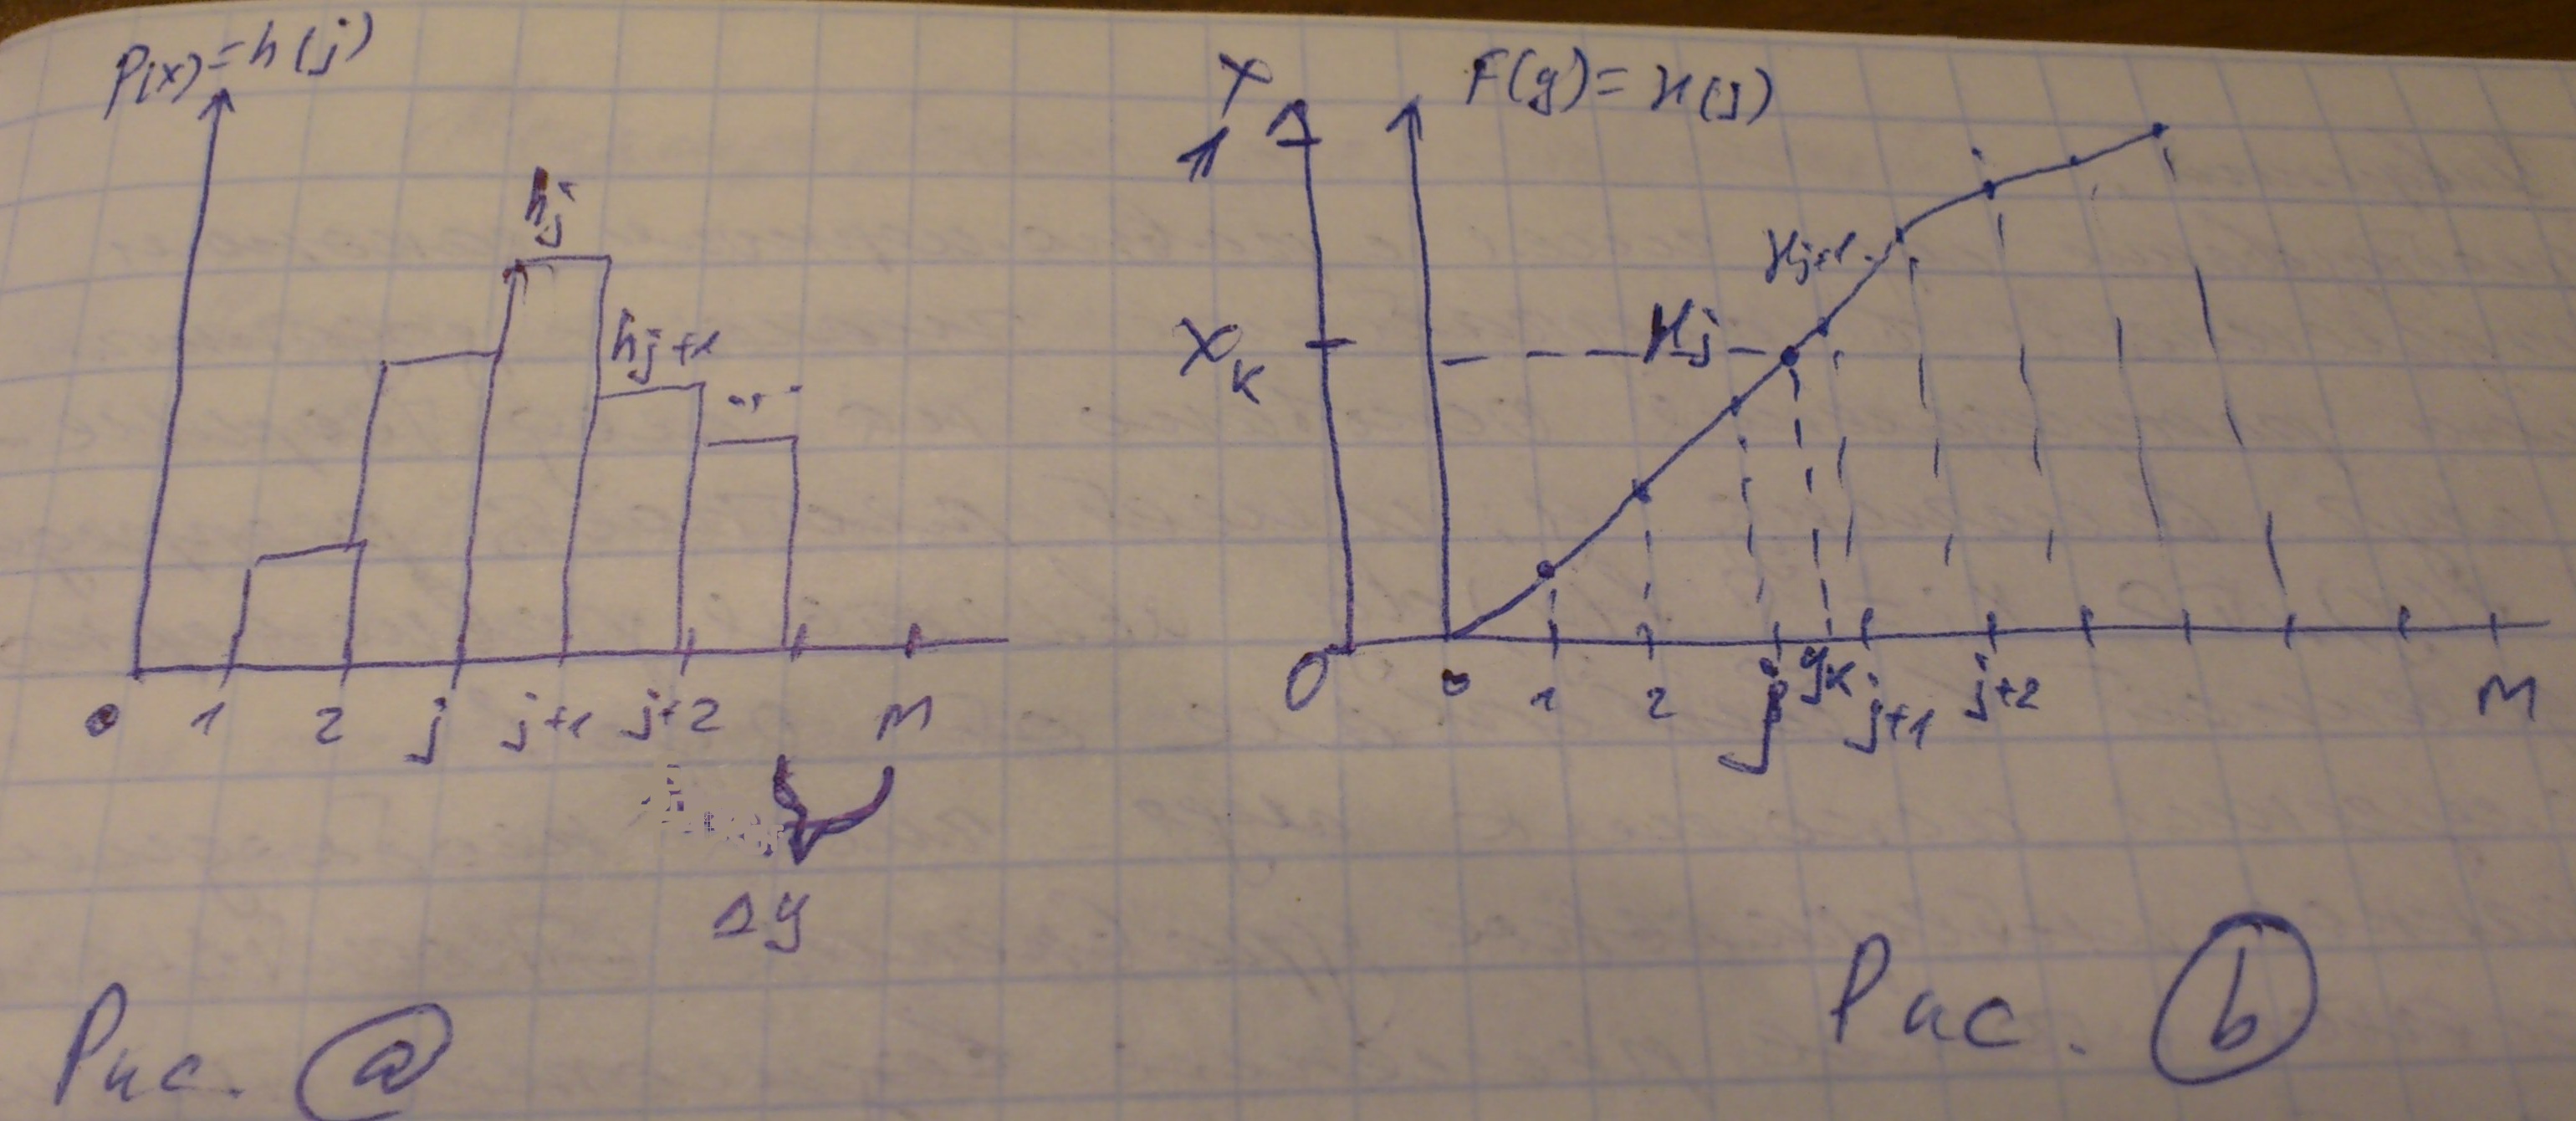 P(x)=h(j)
hj
hj+1
...
0 1 2 j j+1 j+2 M
Δy
Рис. a
X
1
F(y)=H(j)
Hj+1
Hj
Xк
0 0 1 2 j yк j+1 j+2 M
Рис. b